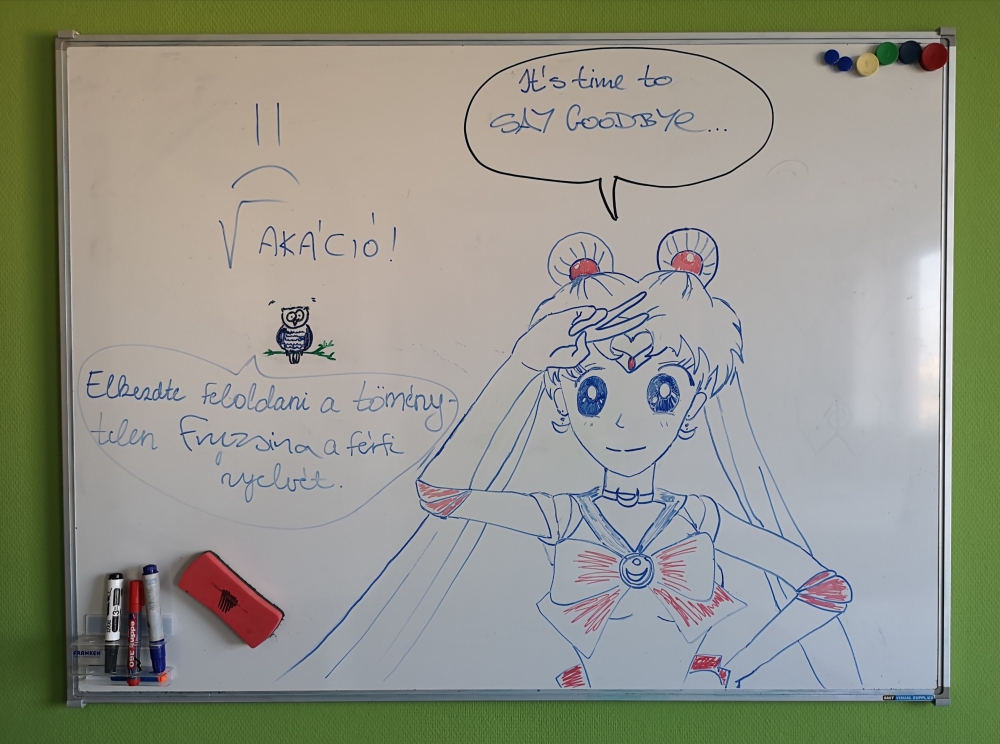 It's time to
SAY GOODBYE...
√AKÁCIÓ!
Elkezdte feloldani a tömény-
telen Fruzsina a férfi
nyelvét.
FRANKEN
VISUAL SUPPLIES